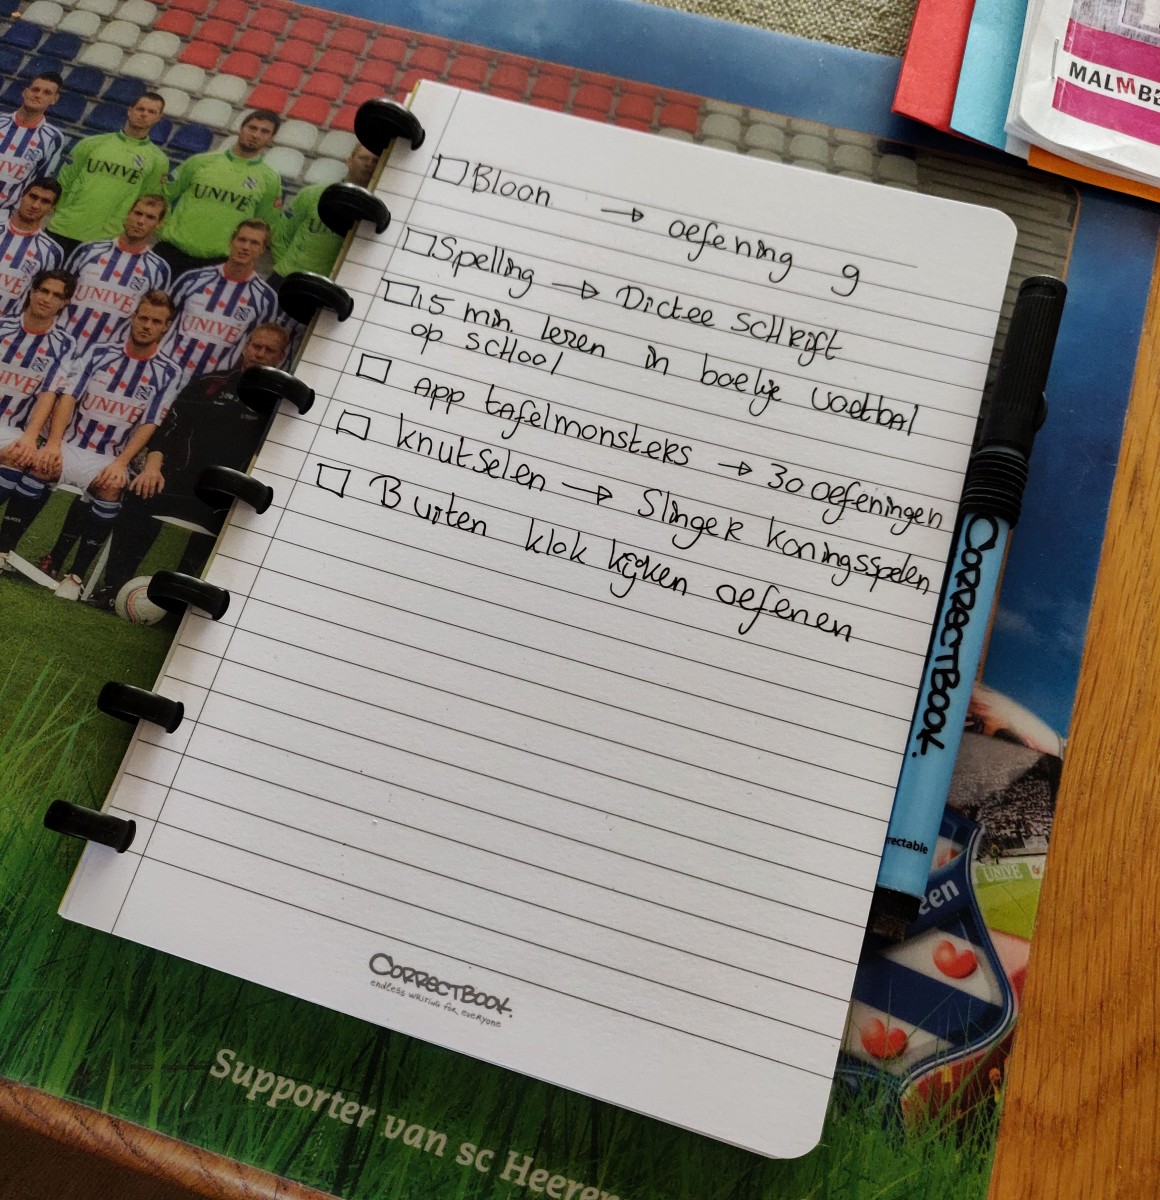 MALMBE
UNIVÉ
UNIVÉ
UNIVÉ
UNIVÉ
UNIVÉ
UNIVÉ
☐ Bloon → oefening 9
☐ Spelling → Dictee schrift
☐ 15 min. lezen in boekje voetbal
op school
☐ App tafelmonsters → 30 oefeningen
☐ knutselen → Slinger koningsspelen
☐ Buiten klok kijken oefenen
CORRECTBOOK.
rectable
UNIVÉ
een
CORRECTBOOK.
endless writing for everyone
Supporter van sc Heeren